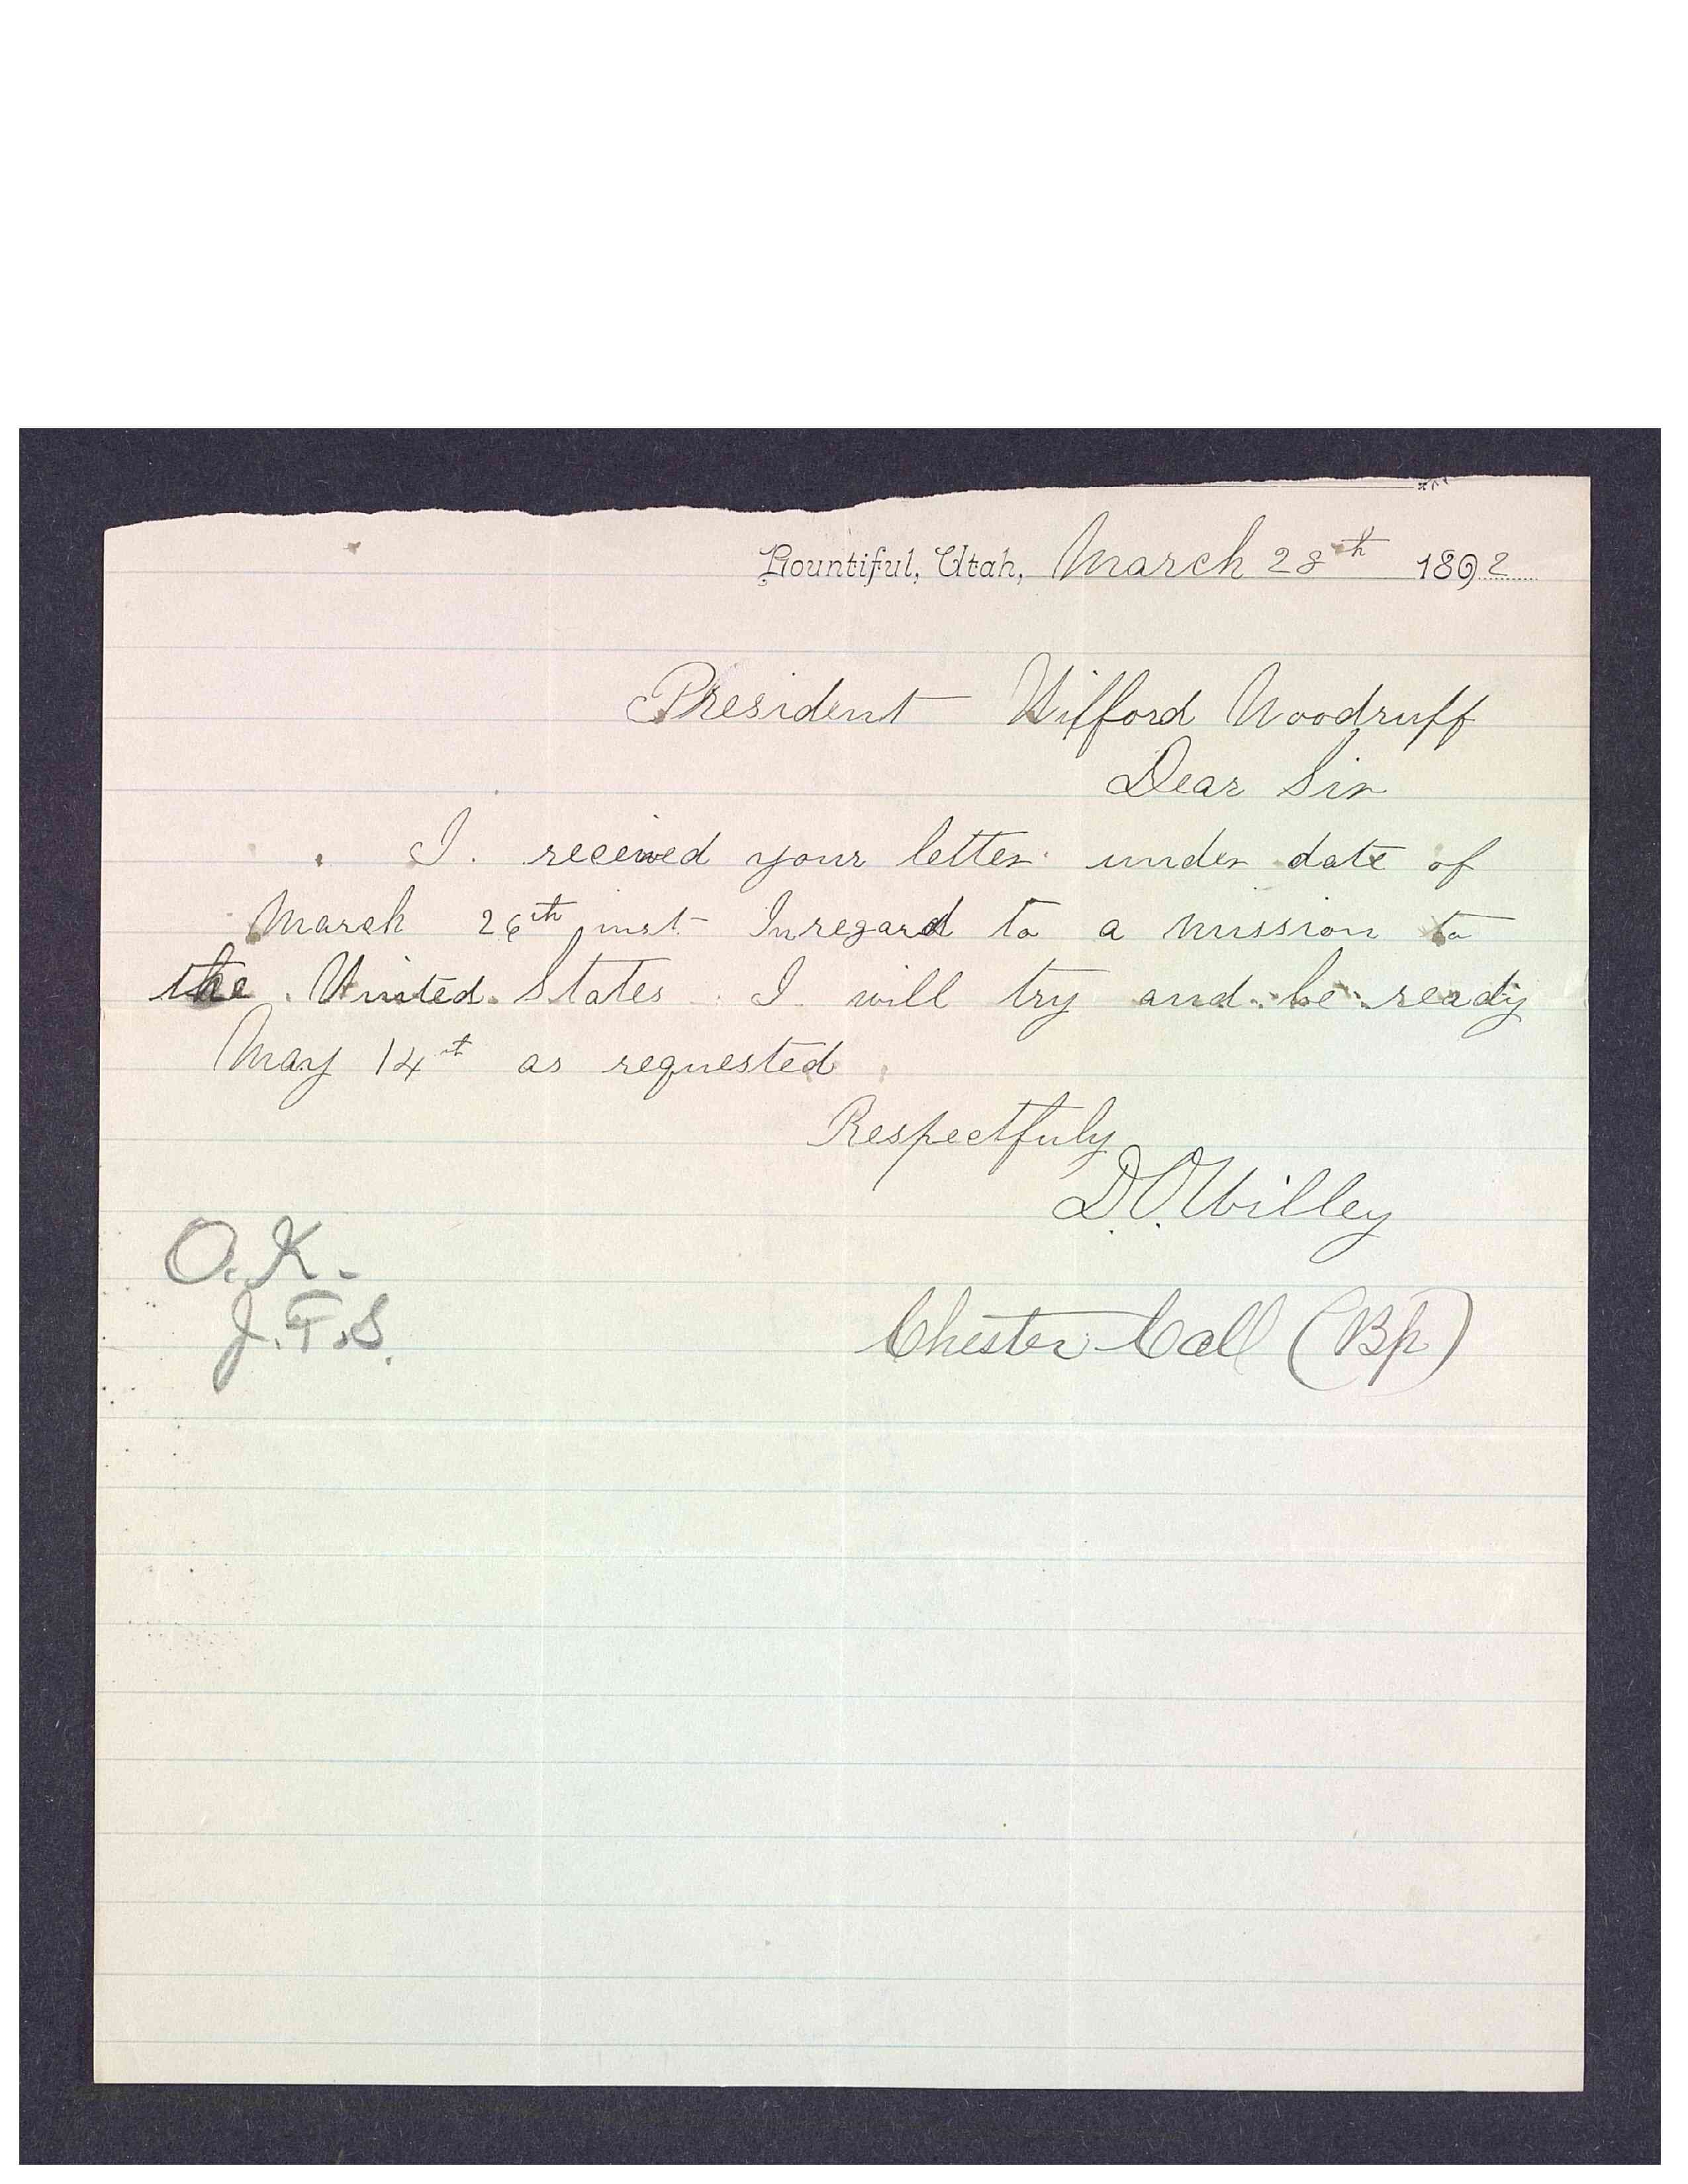 Bountiful, Utah, March 28th 1892
President Wilford Woodruff
Dear Sir
I. received your letter under date of
March 26th inst Inregard to a mission to
the United States I will try and be ready
May 14th as requested
Respectfuly
D. O. Willey
O.K.
J.F.S.
Chester Call (Bp)